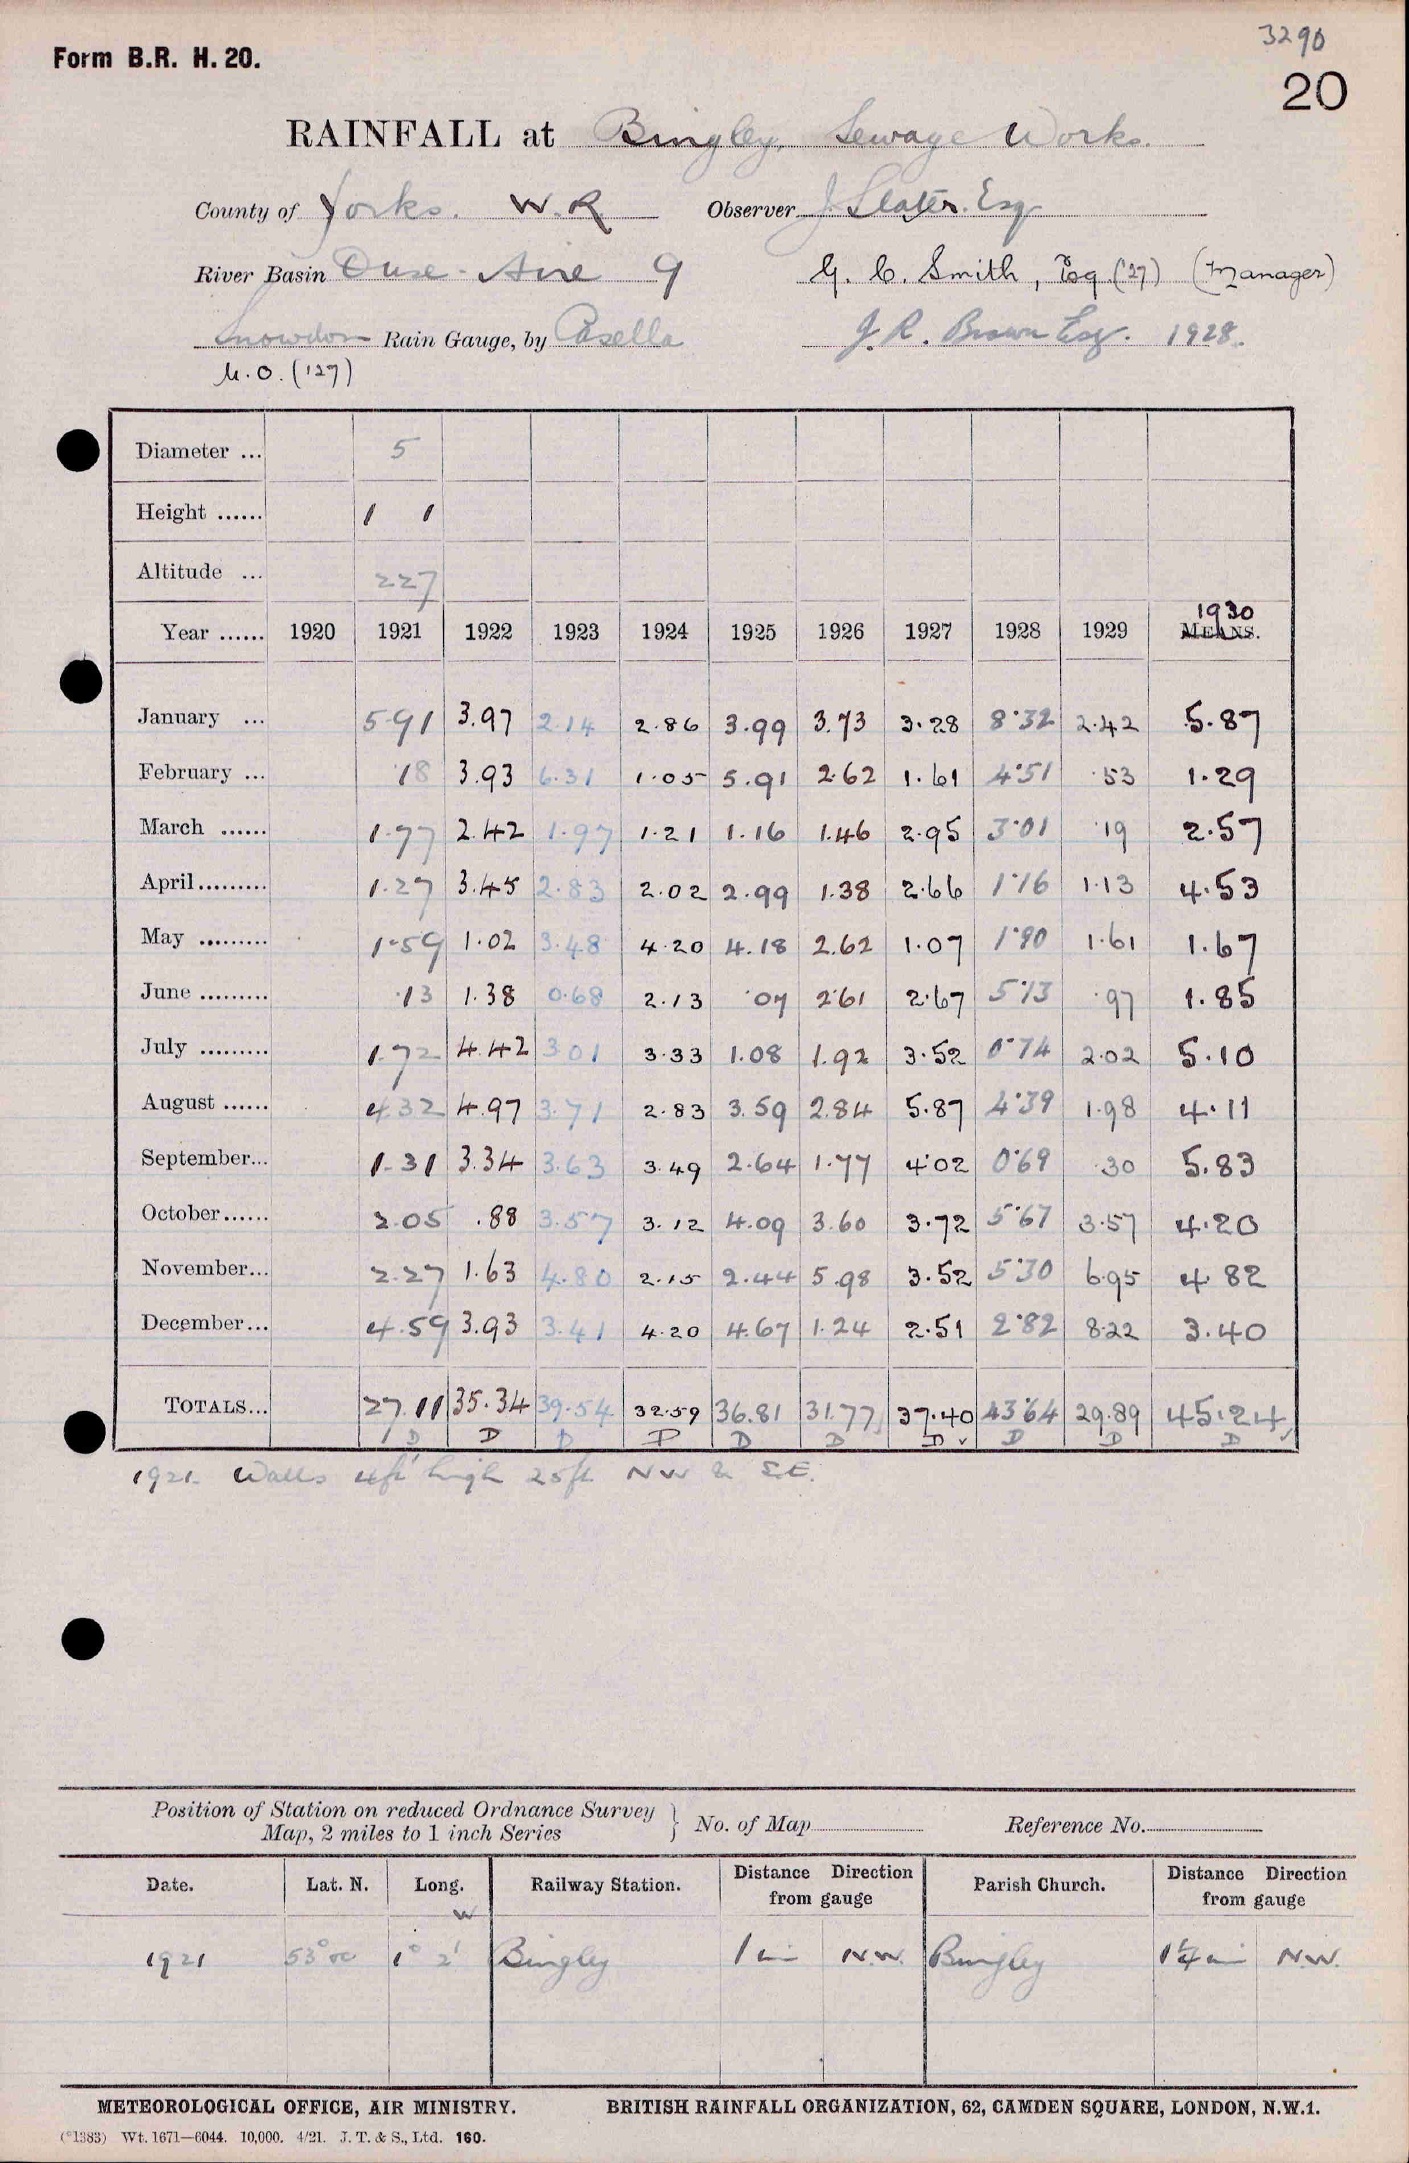 3290
Form B.R. H. 20.
20
RAINFALL at Bingley, Sewage Works.
County of Yorks. W.R. Observer J. Slater. Esq
River Basin Ouse - Aire 9 G. C. Smith, Esq ('27) (Manager)
Snowdon Rain Gauge, by Casella J. R. Brown Esq. 1928.
M.O. ('27)
Diameter ... 5
Height ...... 1 1
Altitude ... 227
1930
Year ...... 1920 1921 1922 1923 1924 1925 1926 1927 1928 1929 MEANS.
January ... 5.91 3.97 2.14 2.86 3.99 3.73 3.28 8.32 2.42 5.87
February ... .18 3.93 6.31 1.05 5.91 2.62 1.61 4.51 .53 1.29
March ...... 1.77 2.42 1.97 1.21 1.16 1.46 2.95 3.01 .19 2.57
April ......... 1.27 3.45 2.83 2.02 2.99 1.38 2.66 1.16 1.13 4.53
May ......... 1.59 1.02 3.48 4.20 4.18 2.62 1.07 1.90 1.61 1.67
June ......... .13 1.38 0.68 2.13 .07 2.61 2.67 5.13 .97 1.85
July ......... 1.72 4.42 3.01 3.33 1.08 1.92 3.52 0.74 2.02 5.10
August ...... 4.32 4.97 3.71 2.83 3.59 2.84 5.87 4.39 1.98 4.11
September... 1.31 3.34 3.63 3.49 2.64 1.77 4.02 0.69 .30 5.83
October...... 2.05 .88 3.57 3.12 4.09 3.60 3.72 5.67 3.57 4.20
November... 2.27 1.63 4.80 2.15 2.44 5.98 3.52 5.30 6.95 4.82
December... 4.59 3.93 3.41 4.20 4.67 1.24 2.51 2.82 8.22 3.40
TOTALS... 27.11 35.34 39.54 32.59 36.81 31.77 37.40 43.64 29.89 45.24
D D D D D D D D D D
1921. Walls 4ft high 25ft NW & S.E.
Position of Station on reduced Ordnance Survey
Map, 2 miles to 1 inch Series } No. of Map Reference No.
Date. Lat. N. Long. W Railway Station. Distance Direction from gauge Parish Church. Distance Direction from gauge
1921 53° 1° 2' Bingley 1 mi N.W. Bingley 1¼ mi N.W.
METEOROLOGICAL OFFICE, AIR MINISTRY. BRITISH RAINFALL ORGANIZATION, 62, CAMDEN SQUARE, LONDON, N.W.1.
(*1383) Wt. 1671—6044. 10,000. 4/21. J. T. & S., Ltd. 160.